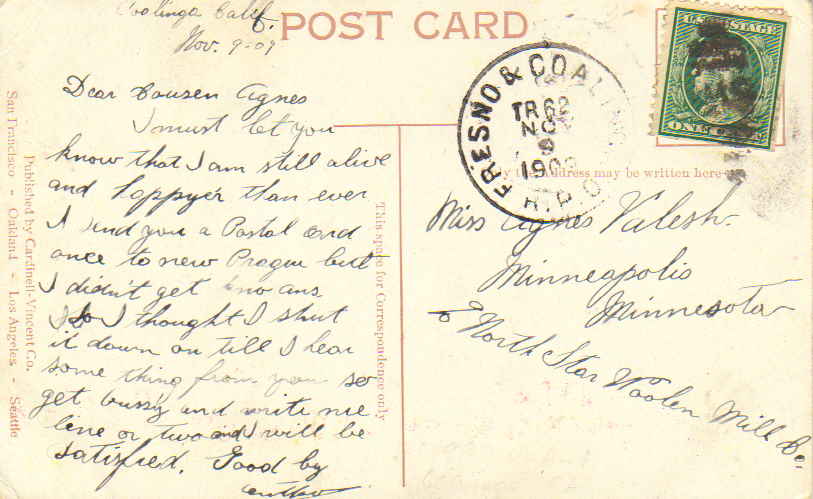 Coalinga Calif.
Nov. 9-09
POST CARD
U.S. POSTAGE
ONE CENT
FRESNO & COALING
TR 62
NO
9
1909
R.P.O.
Dear Cousen Agnes
I must let you
know that I am still alive
and happyer than ever
I send you a Postal card
once to new Prague but
I didn't get no ans
So I thought I shut
it down on till I hear
some thing from you so
get bussy and write me
line or two and I will be
satisfied. Good by
This space for Correspondence only
Only the address may be written here
Miss Agnes Valesh.
Minneapolis
Minnesota
North Star Woolen Mill Co.
Published by Cardinell-Vincent Co.
San Francisco - Oakland - Los Angeles - Seattle